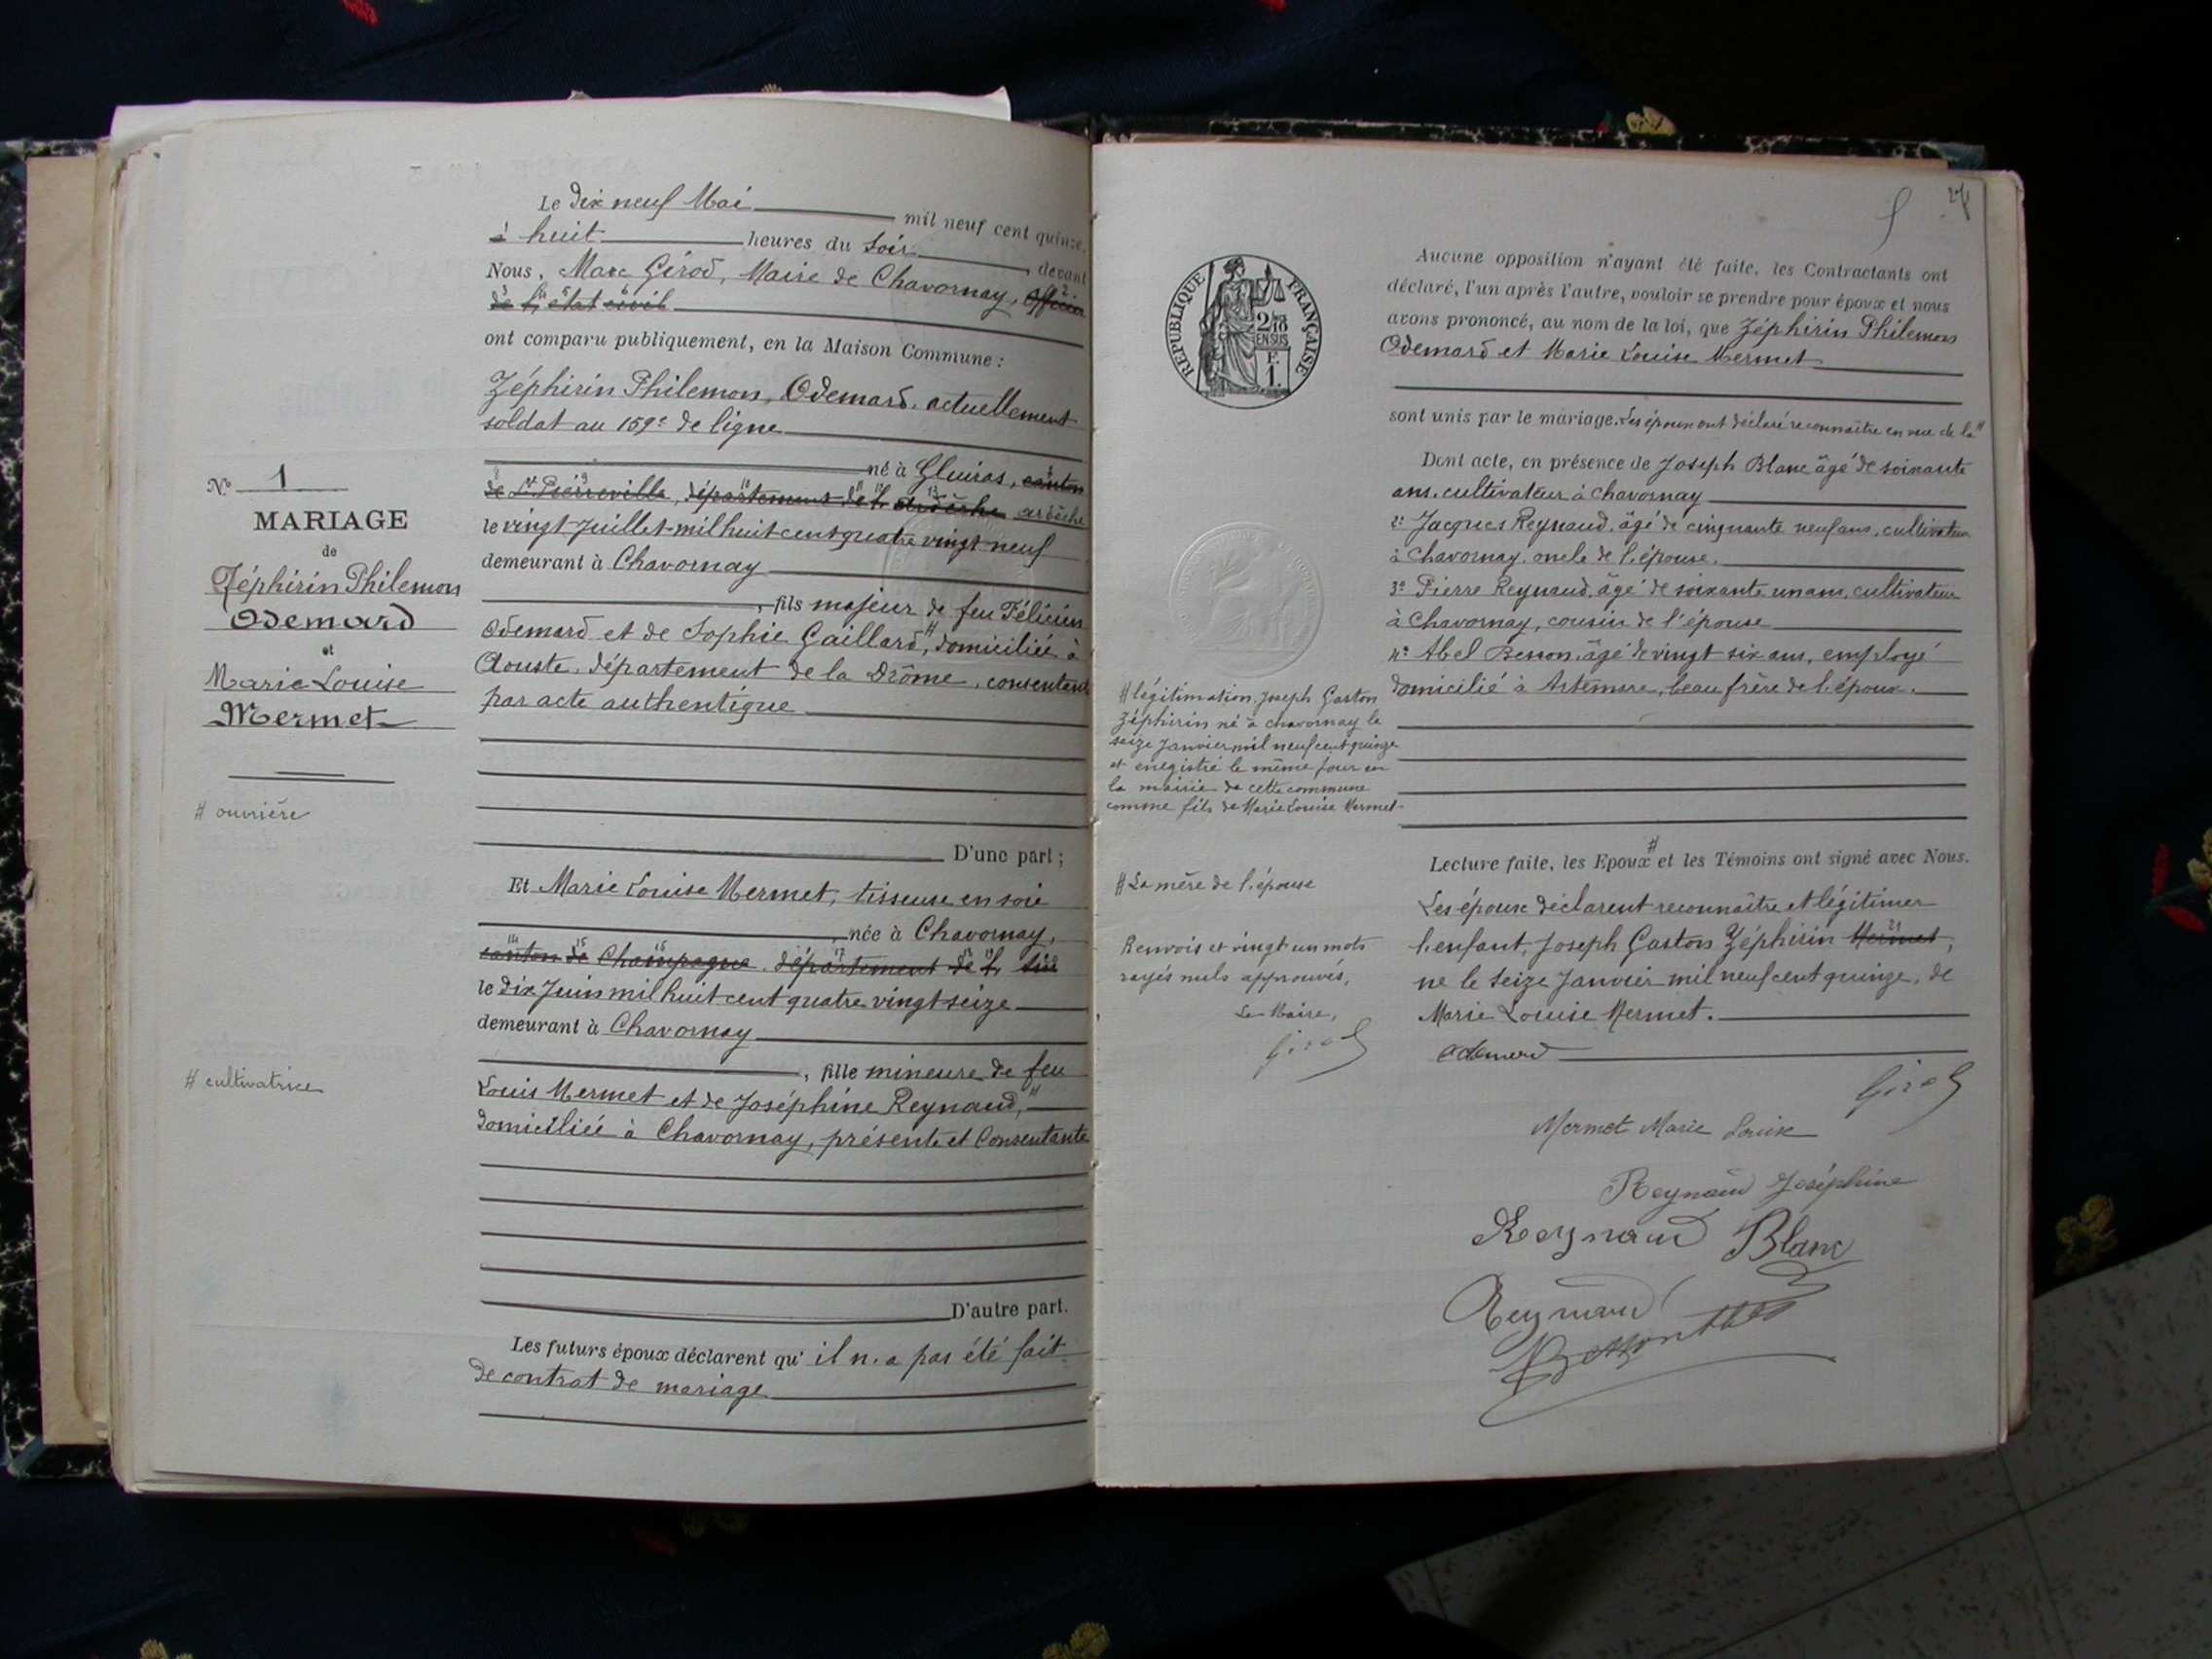 Le dix neuf Mai mil neuf cent quinze,
à huit heures du soir, devant
Nous, Marc Girod, Maire de Chavornay, officier
de l'état civil
ont comparu publiquement, en la Maison Commune :
Zéphirin Philemon, Odemard, actuellement
soldat au 159e de ligne
né à Gluiras, canton
de St Pierreville, département de l'ardèche ardèche
le vingt Juillet mil huit cent quatre vingt neuf
demeurant à Chavornay
, fils majeur de feu Félicien
Odemard et de Sophie Gaillard,# domiciliée à
Aouste, département de la Drôme, consentant
par acte authentique
D'une part ;
Et Marie Louise Mermet, tisseuse en soie
, née à Chavornay,
canton de Champagne, département de l'Ain
le dix Juin mil huit cent quatre vingt seize
demeurant à Chavornay
, fille mineure de feu
Louis Mermet et de Joséphine Reynaud,#
domiciliée à Chavornay, présente et Consentante
D'autre part.
Les futurs époux déclarent qu'il n'a pas été fait
de contrat de mariage
No 1
MARIAGE
de
Zéphirin Philemon
Odemard
et
Marie Louise
Mermet
# ouvrière
# cultivatrice
27
RÉPUBLIQUE FRANÇAISE
2/10
EN SUS
F.
1.
Aucune opposition n'ayant été faite, les Contractants ont
déclaré, l'un après l'autre, vouloir se prendre pour époux et nous
avons prononcé, au nom de la loi, que Zéphirin Philemon
Odemard et Marie Louise Mermet
sont unis par le mariage. Les époux ont déclaré reconnaître en vue de la#
Dont acte, en présence de Joseph Blanc âgé de soixante
ans, cultivateur à Chavornay
2° Jacques Reynaud, âgé de cinquante neuf ans, cultivateur
à Chavornay, oncle de l'épouse.
3° Pierre Reynaud, âgé de soixante un ans, cultivateur
à Chavornay, cousin de l'épouse
4° Abel Besson, âgé de vingt six ans, employé
domicilié à Artemare, beau frère de l'époux.
# légitimation, Joseph Gaston
Zéphirin né à Chavornay le
seize Janvier mil neuf cent quinze
et enregistré le même jour en
la mairie de cette commune
comme fils de Marie Louise Mermet
Lecture faite, les Epoux# et les Témoins ont signé avec Nous.
# La mère de l'épouse
Les époux déclarent reconnaître et légitimer
l'enfant, Joseph Gaston Zéphirin Mermet,
né le seize Janvier mil neuf cent quinze, de
Marie Louise Mermet.
Renvois et vingt un mots
rayés nuls approuvés,
Le Maire,
Girod
Odemard
Girod
Mermet Marie Louise
Reynaud Joséphine
Reynaud Blanc
Reynaud